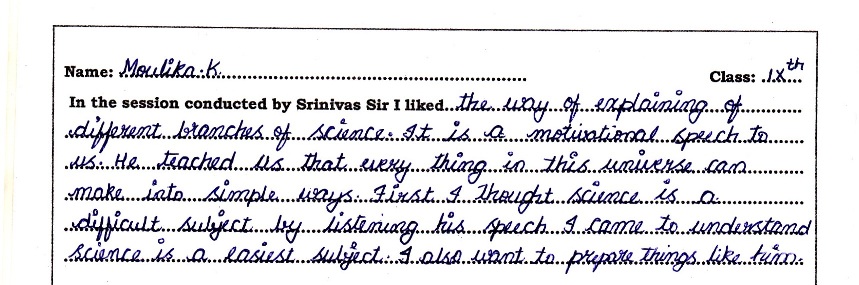 Name: Moulika.K. Class: IXth
In the session conducted by Srinivas Sir I liked the way of explaining of
different branches of science. It is a motivational speech to
us. He teached us that every thing in this universe can
make into simple ways. First I thought science is a
difficult subject by listening his speech I came to understand
science is a easiest subject. I also want to prepare things like him.